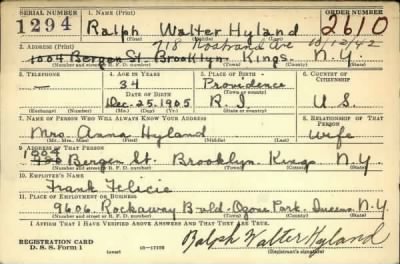 SERIAL NUMBER 1. NAME (Print) ORDER NUMBER
1294 Ralph Walter Hyland 2610
718 Nostrand Ave 10/12/42
2. ADDRESS (Print)
1004 Bergen St. Brooklyn Kings. N.Y.
3. TELEPHONE 4. AGE IN YEARS 5. PLACE OF BIRTH 6. COUNTRY OF CITIZENSHIP
— 34 Providence
DATE OF BIRTH
Dec. 25. 1905 R.I. U.S.
(Exchange) (Number) (Mo.) (Day) (Yr.) (State or county)
7. NAME OF PERSON WHO WILL ALWAYS KNOW YOUR ADDRESS 8. RELATIONSHIP OF THAT PERSON
Mrs. Anna Hyland wife
(Mr., Mrs., Miss) (First) (Middle) (Last)
9. ADDRESS OF THAT PERSON
1004
Bergen St. Brooklyn. Kings N.Y.
(Number and street or R. F. D. number) (Town) (County) (State)
10. EMPLOYER'S NAME
Frank Felicie
11. PLACE OF EMPLOYMENT OR BUSINESS
9606. Rockaway Bvld. Ozone Park. Queens. N.Y
(Number and street or R. F. D. number) (Town) (County) (State)
I AFFIRM THAT I HAVE VERIFIED ABOVE ANSWERS AND THAT THEY ARE TRUE.
REGISTRATION CARD
D. S. S. Form 1 (over) Ralph Walter Hyland
(Registrant's signature)